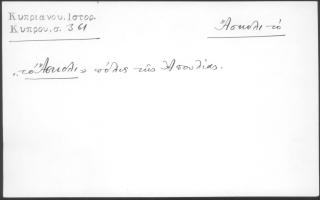 Κυπριανου. Ιστορ.
Κυπρου. σ. 361
Ἄσκολι τὸ
„τὸ Ἄσκολι„ πόλις τῆς Ἀπουλίας.